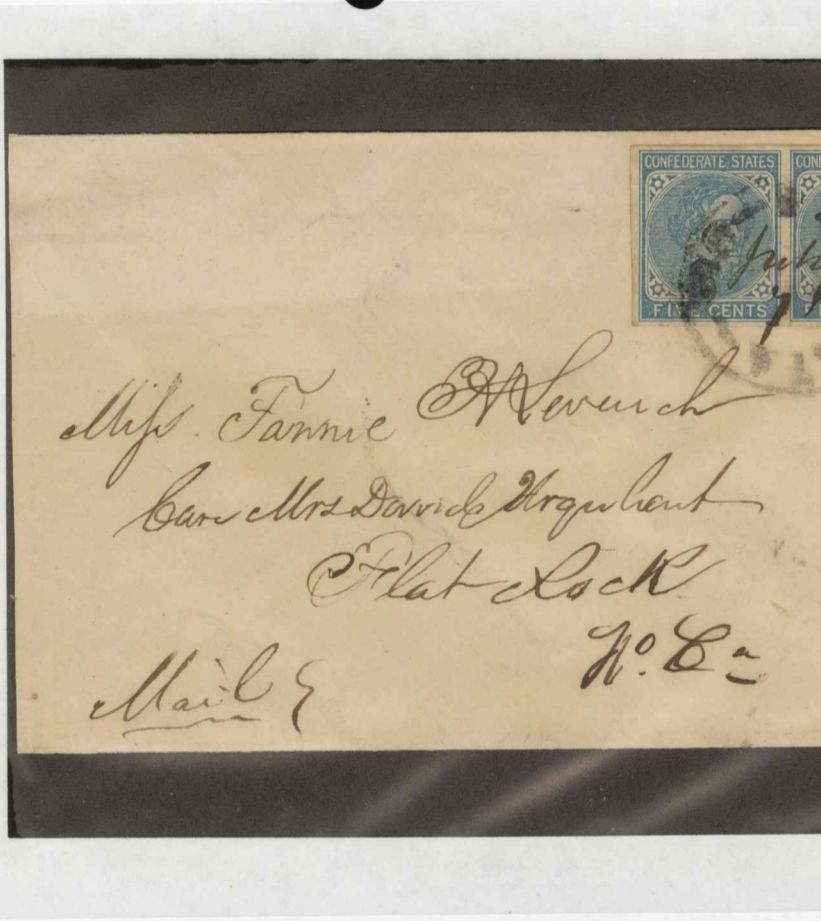 CONFEDERATE STATES
FIVE CENTS
Miss Fannie
Care Mrs David Urquhart
Flat Rock
No. Ca
Mail